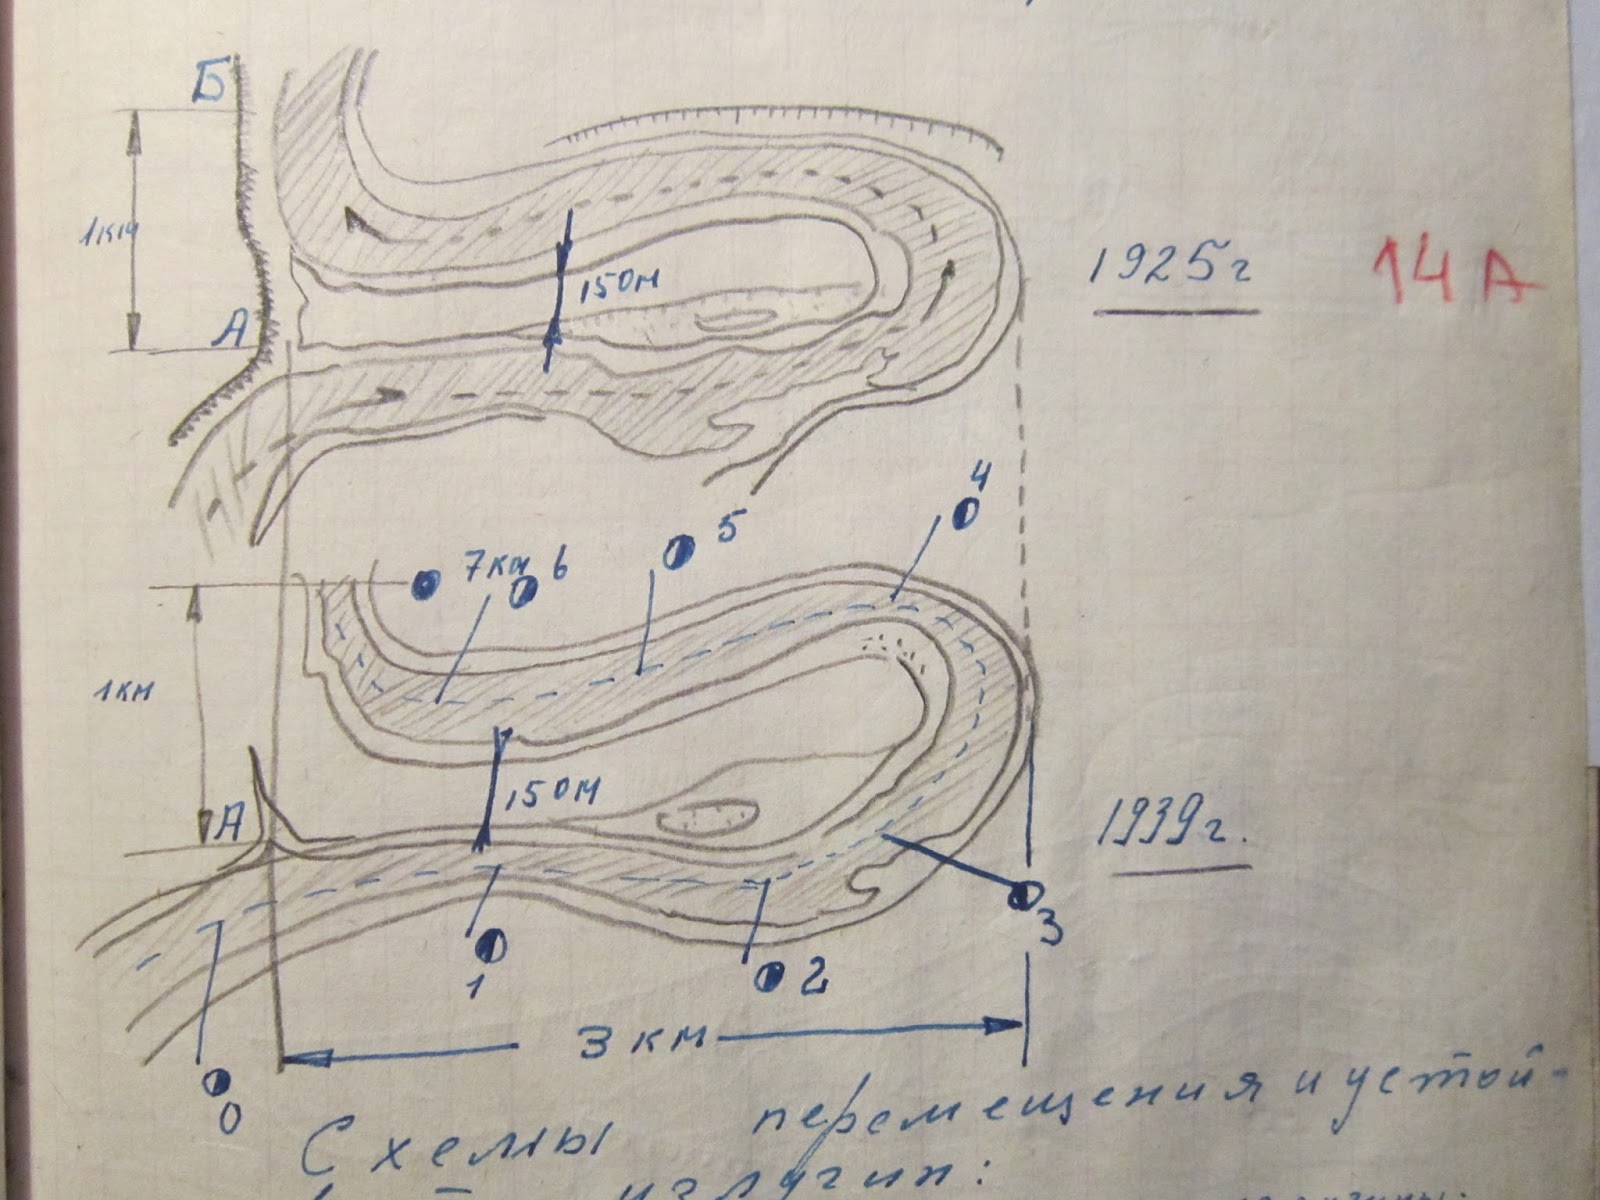 Б
1км
150м
1925г
14А
А
4
5
7км
6
1км
150м
А
1939г.
3
1
2
3км
0
Схемы перемещения и устой-
излучин: